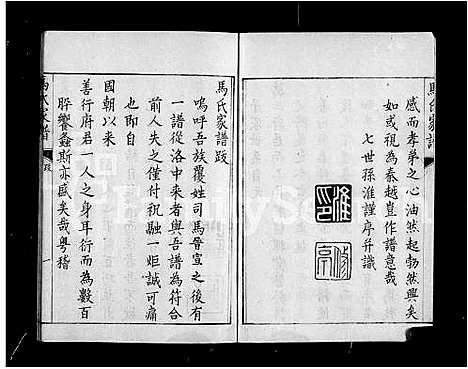 馬氏家譜
感而孝弟之心油然起勃然興矣
如或視為秦越豈作譜意哉
七世孫淮謹序并識
淮印
馬氏家譜跋
嗚呼吾族覆姓司馬晉宣之後有
一譜從洛中来者與吾譜為符合
前人失之僅付祝融一炬誠可痛
也即自
國朝以来
善行府君一人之身耳衍而為數百
胙饗螽斯亦盛矣哉粤稽
馬氏家譜
跋
一